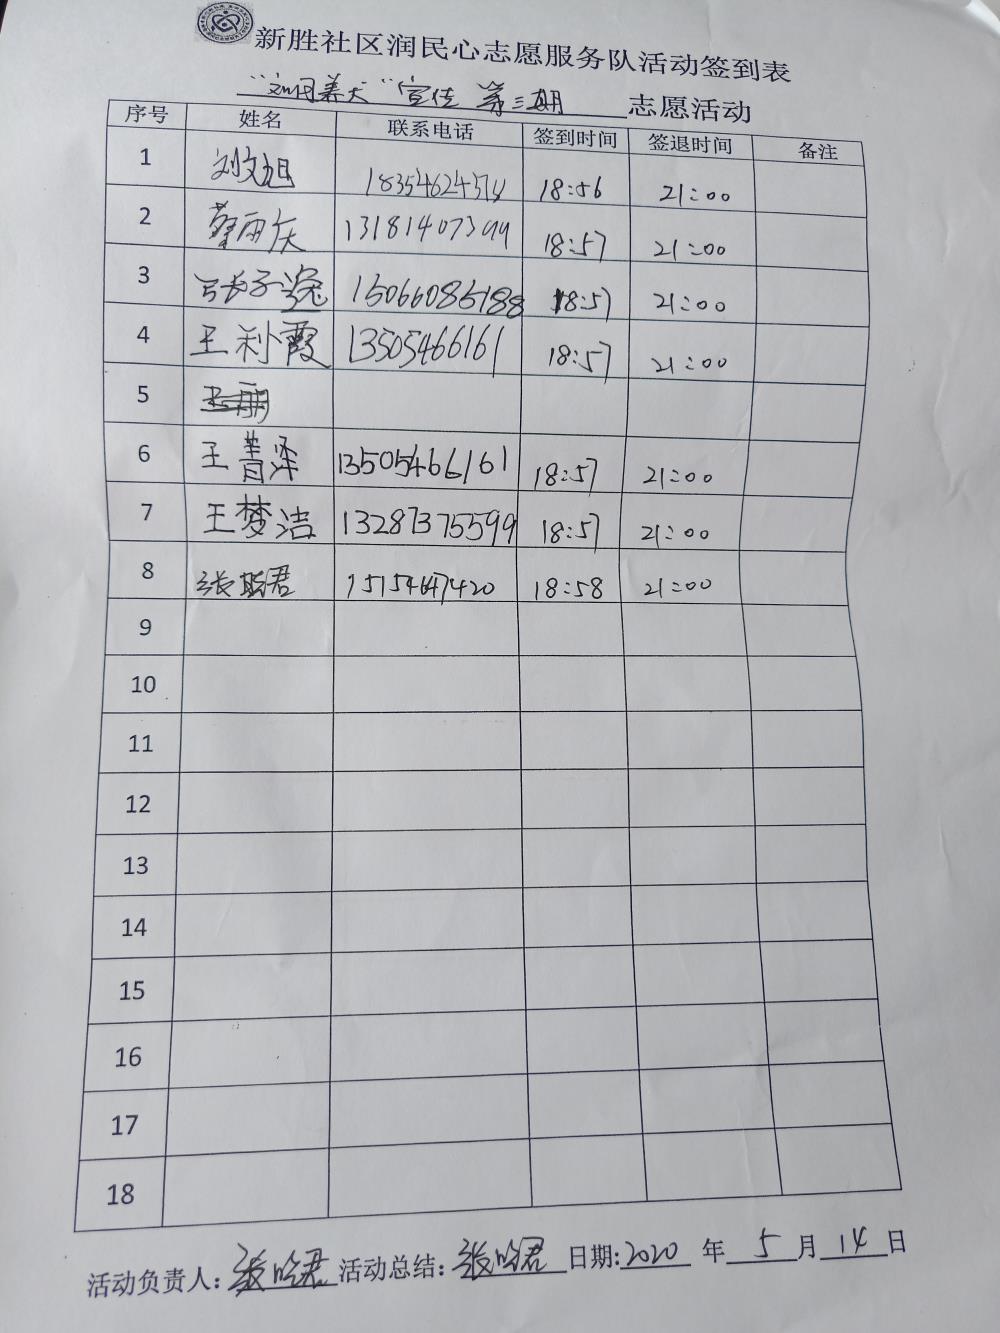 新胜社区润民心志愿服务队活动签到表
"文明养犬"宣传 第三期 志愿活动
序号 姓名 联系电话 签到时间 签退时间 备注
1 刘文旭 18354624374 18:56 21:00
2 蔡雨辰 13181407399 18:57 21:00
3 张子逸 15066085188 18:57 21:00
4 王利霞 13505466161 18:57 21:00
5
6 王菁泽 13505466161 18:57 21:00
7 王梦洁 13287375599 18:57 21:00
8 张晗君 15154647420 18:58 21:00
9
10
11
12
13
14
15
16
17
18
活动负责人: 张晗君 活动总结: 张晗君 日期: 2020 年 5 月 14 日